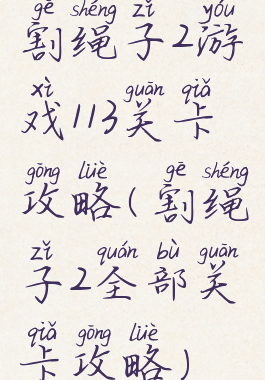 gē shéng zǐ yóu
割绳子2游
xì guān qiǎ
戏113关卡
gōng lüè gē shéng
攻略(割绳
zǐ quán bù guān
子2全部关
qiǎ gōng lüè
卡攻略)